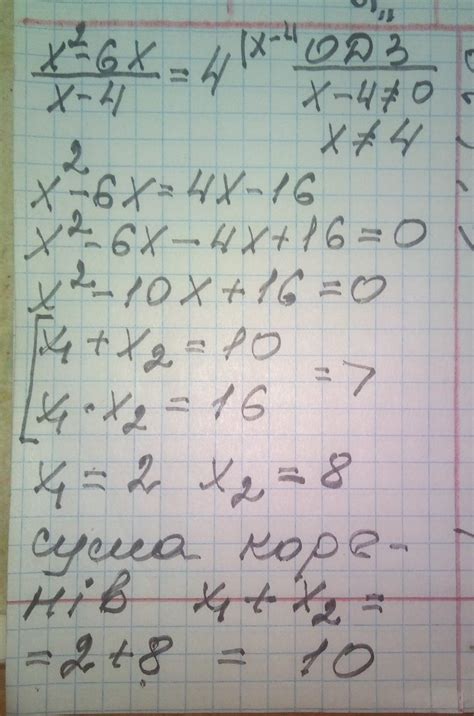 x²-6x / x-4 = 4 |x-4 ОДЗ
x-4≠0
x≠4
x²-6x=4x-16
x²-6x-4x+16=0
x²-10x+16=0
[x₁+x₂=10
x₁·x₂=16 =>
x₁=2 x₂=8
сума коре-
нів x₁+x₂=
=2+8 = 10